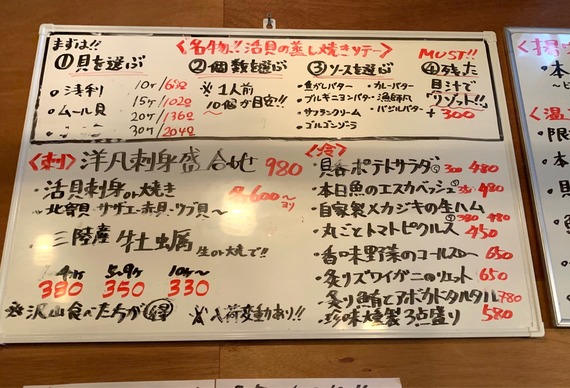 まずは!!
〈名物!!活貝の蒸し焼きソテー〉
①貝を選ぶ
・浅利
・ムール貝
10ヶ/680
15ヶ/1020
20ヶ/1360
30ヶ/2040
②個数を選ぶ
※1人前
10個が目安!!
③ソースを選ぶ
・魚がしバター
・カレーバター
・ブルギニョンバター
・漁師風
・サフランクリーム
・バジルバター
・ゴルゴンゾーラ
MUST!!
④残った
貝汁で
リゾット!!
+300
〈刺〉洋風刺身盛合せ 980
・活貝刺身or焼き 600〜
・北寄貝 サザエ・赤貝・ツブ貝〜
・三陸産 牡蠣 生or焼で!!
1〜4ヶ 5〜9ヶ 10ヶ〜
380 350 330
※沢山食べた方が㊝
※入荷変動あり!!
〈冷〉
・貝呑ポテトサラダ 300 480
・本日魚のエスカベッシュ 480
・自家製メカジキの生ハム
380 980
・丸ごとトマトピクルス 450
・香味野菜のコールスロー 650
・炙りズワイガニのリエット 650
・炙り鯖とアボカドタルタル 780
・珍味燻製3点盛り 580
・本
限
本